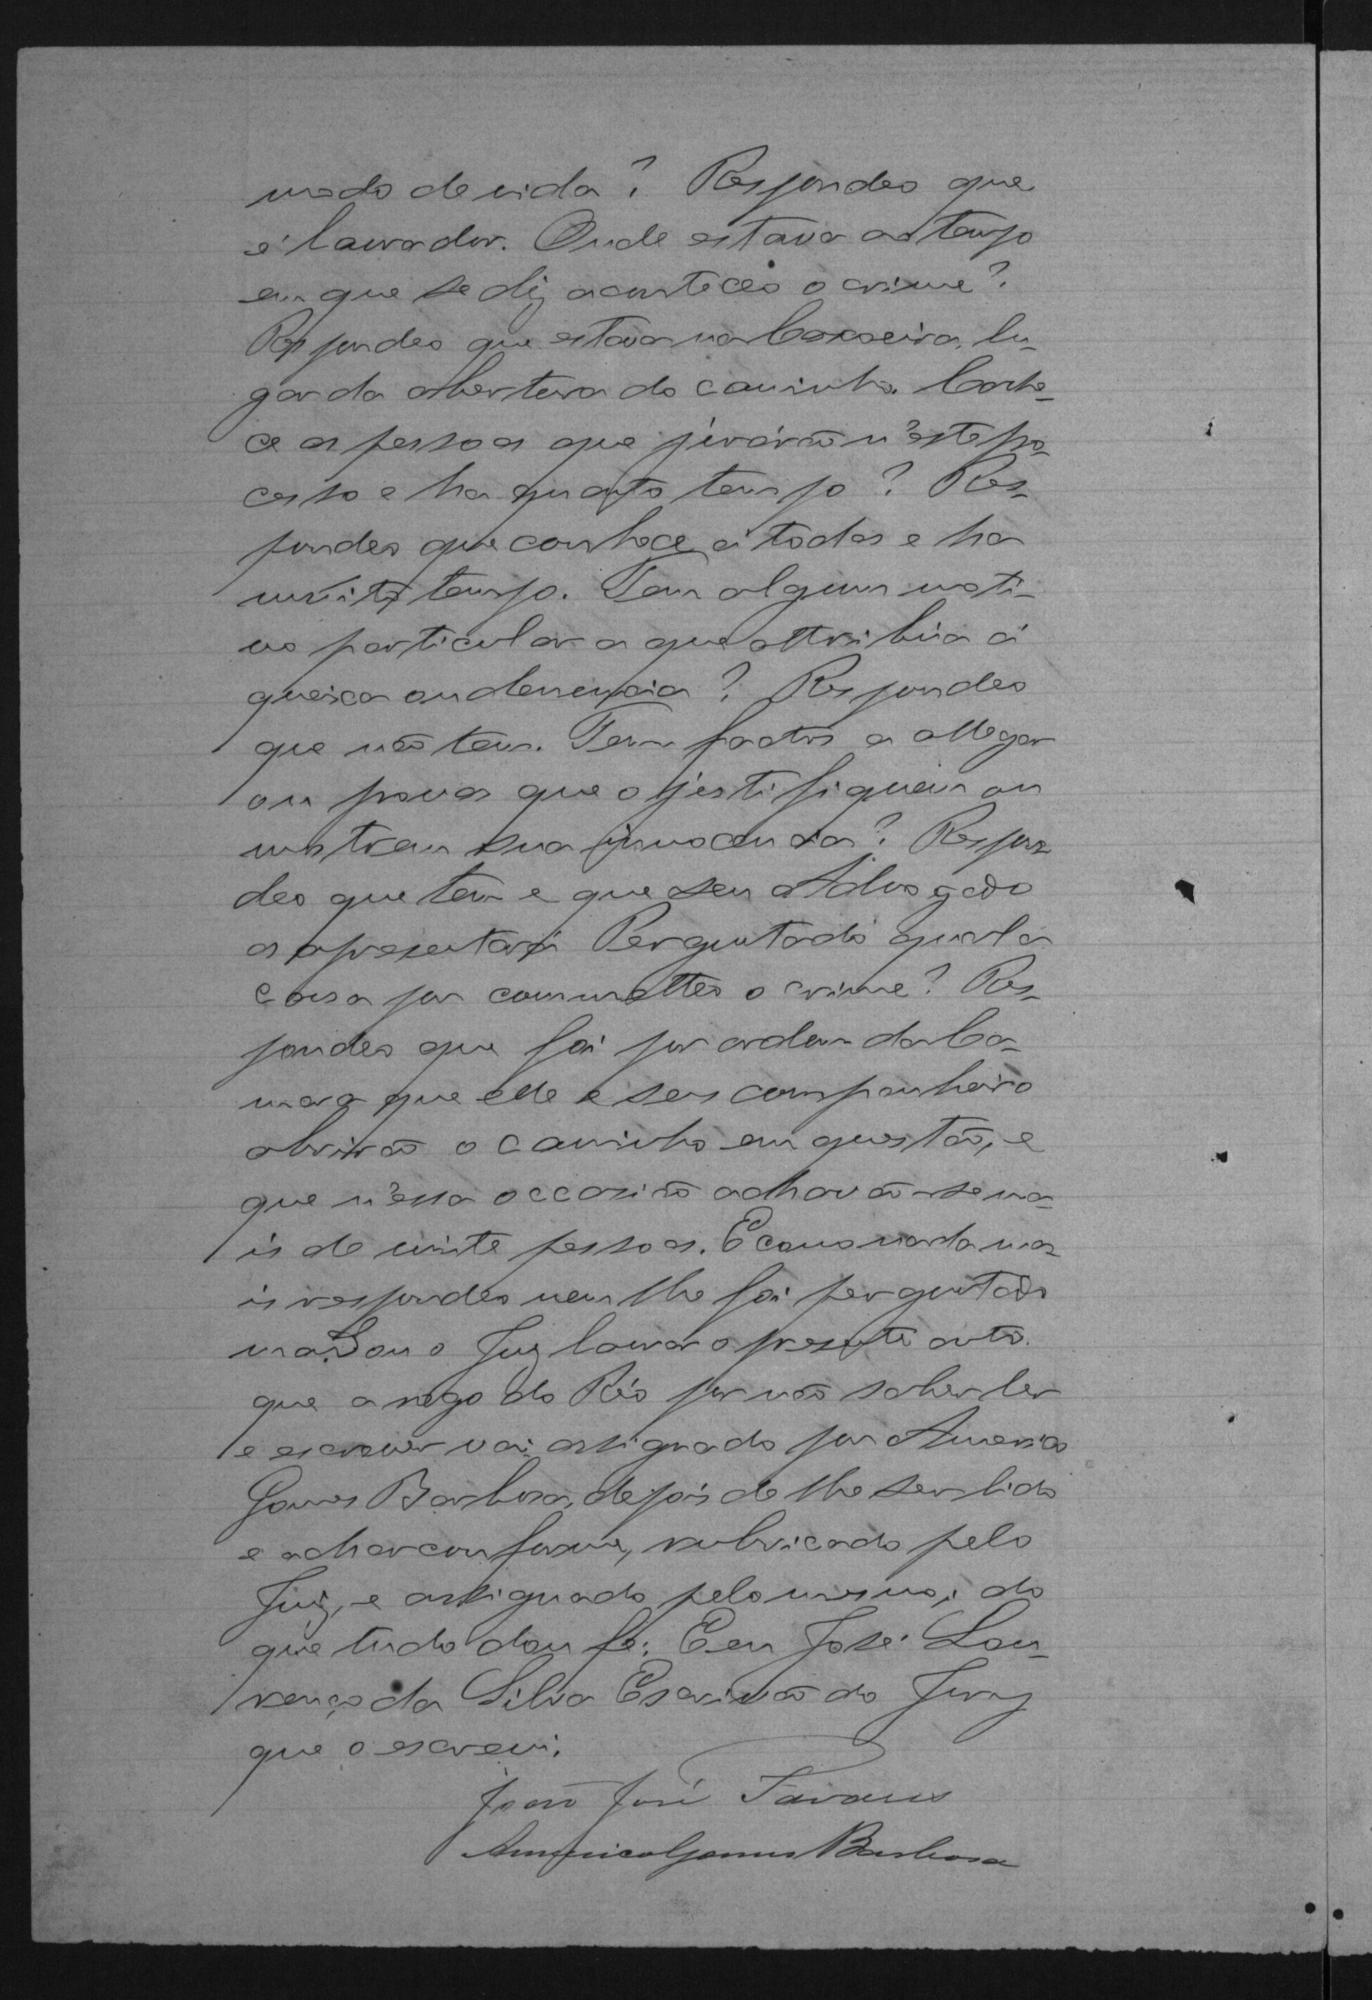 modo de vida? Respondeo que
é lavrador. Onde estava ao tempo
em que se diz aconteceo o crime?
Respondeo que estava na Caxoeira, lu-
gar da abertura do caminho. Conhe-
ce as pessoas que jurárão n'este pro-
cesso e ha quanto tempo? Res-
pondeo que conhece á todas e ha
muito tempo. Tem algum moti-
vo particular a que attribúa á
queixa ou denuncia? Respondeo
que não tem. Tem factos a allegar
ou provas que o justifiquem ou
mostrem sua innocencia? Respon-
deo que tem e que seu Advogado
as apresentará Perguntado qual a
causa por commetteo o crime? Res-
pondeo que foi por ordem da Ca-
mara que elle e seu companheiro
abrirão o caminho em questão, e
que n'essa occasião achavão-se ma-
is de vinte pessoas. E como nada ma-
is respondeo nem lhe foi perguntado
mandou o Juiz lavrar o presente auto
que a rogo do Réo por não saber ler
e escrever vai assignado por Americo
Gomes Barbosa, depois de lhe ser lido
e achar conforme, rubricado pelo
Juiz, e assignado pelo mesmo; do
que tudo dou fé. E eu José Lou-
renço da Silva Escrivão do Jury
que o escrevi.
João José Tavares
Americo Gomes Barbosa